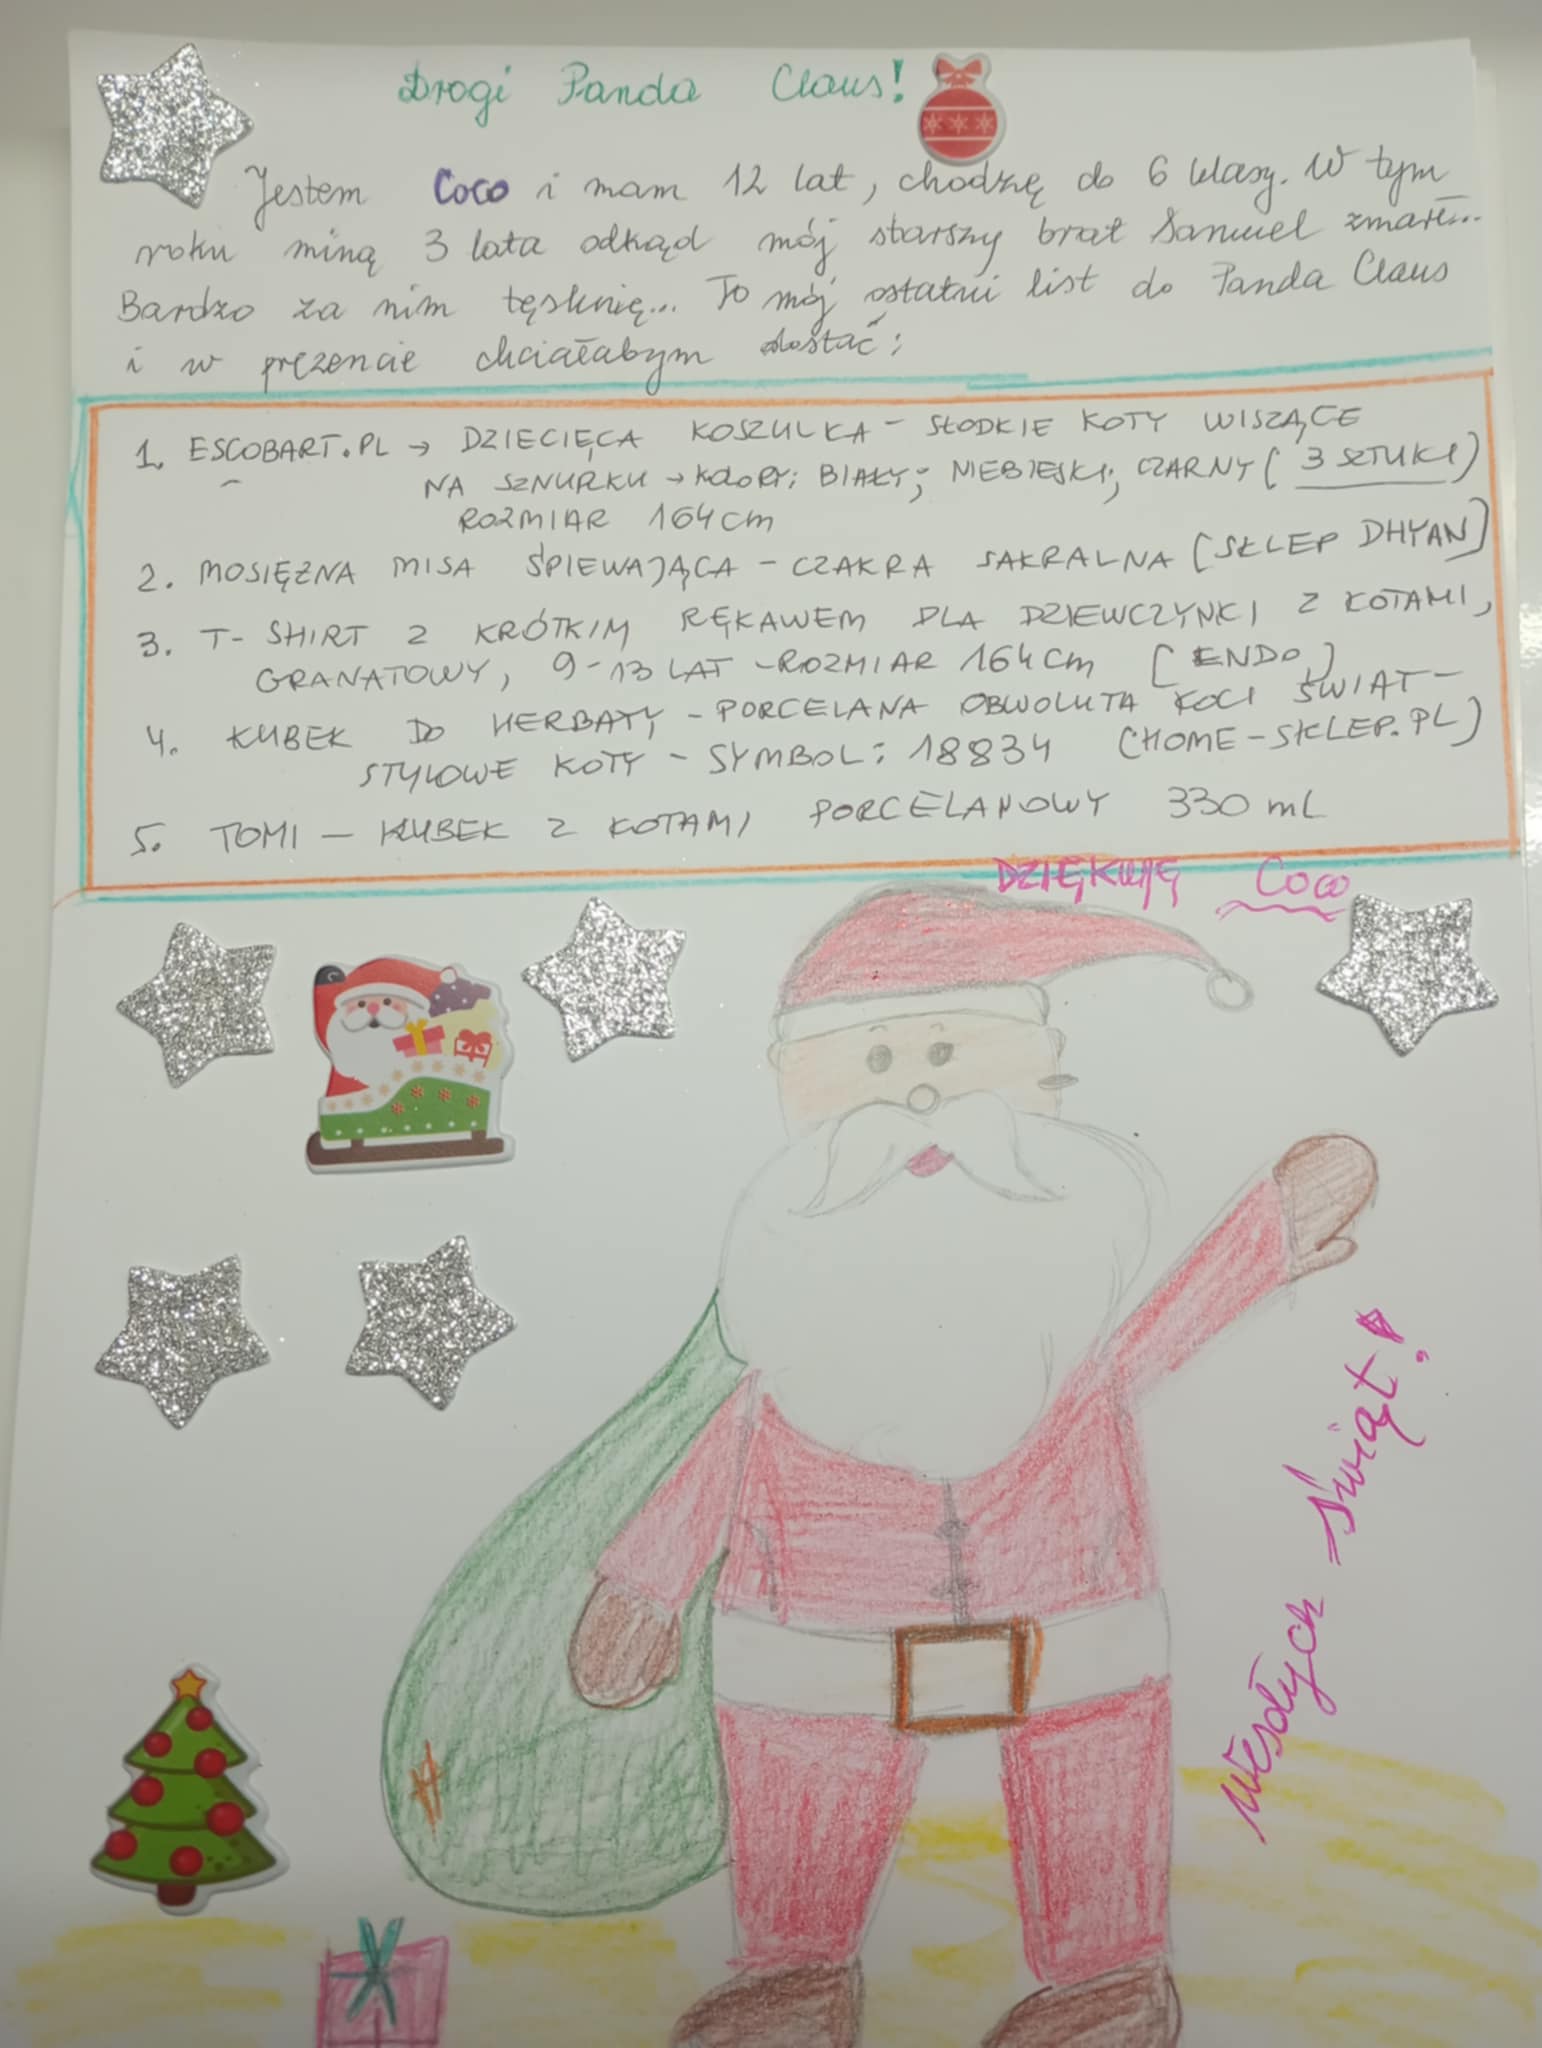 Drogi Panda Claus!
Jestem Coco i mam 12 lat, chodzę do 6 klasy. W tym
roku miną 3 lata odkąd mój starszy brat Samuel zmarł...
Bardzo za nim tęsknię... To mój ostatni list do Panda Claus
i w prezencie chciałabym dostać:
1. ESCOBART.PL → DZIECIĘCA KOSZULKA - SŁODKIE KOTY WISZĄCE
NA SZNURKU → KOLORY: BIAŁY; NIEBIESKI; CZARNY (3 SZTUKI)
ROZMIAR 164cm
2. MOSIĘŻNA MISA ŚPIEWAJĄCA - CZAKRA SAKRALNA [SKLEP DHYAN]
3. T-SHIRT Z KRÓTKIM RĘKAWEM DLA DZIEWCZYNKI Z KOTAMI,
GRANATOWY, 9-13 LAT - ROZMIAR 164cm [ENDO]
4. KUBEK DO HERBATY - PORCELANA OBWOLUTA KOCI ŚWIAT -
STYLOWE KOTY - SYMBOL: 18834 (HOME-SKLEP.PL)
5. TOMI - KUBEK Z KOTAMI PORCELANOWY 330 mL
DZIĘKUJĘ Coco
Wesołych Świąt!